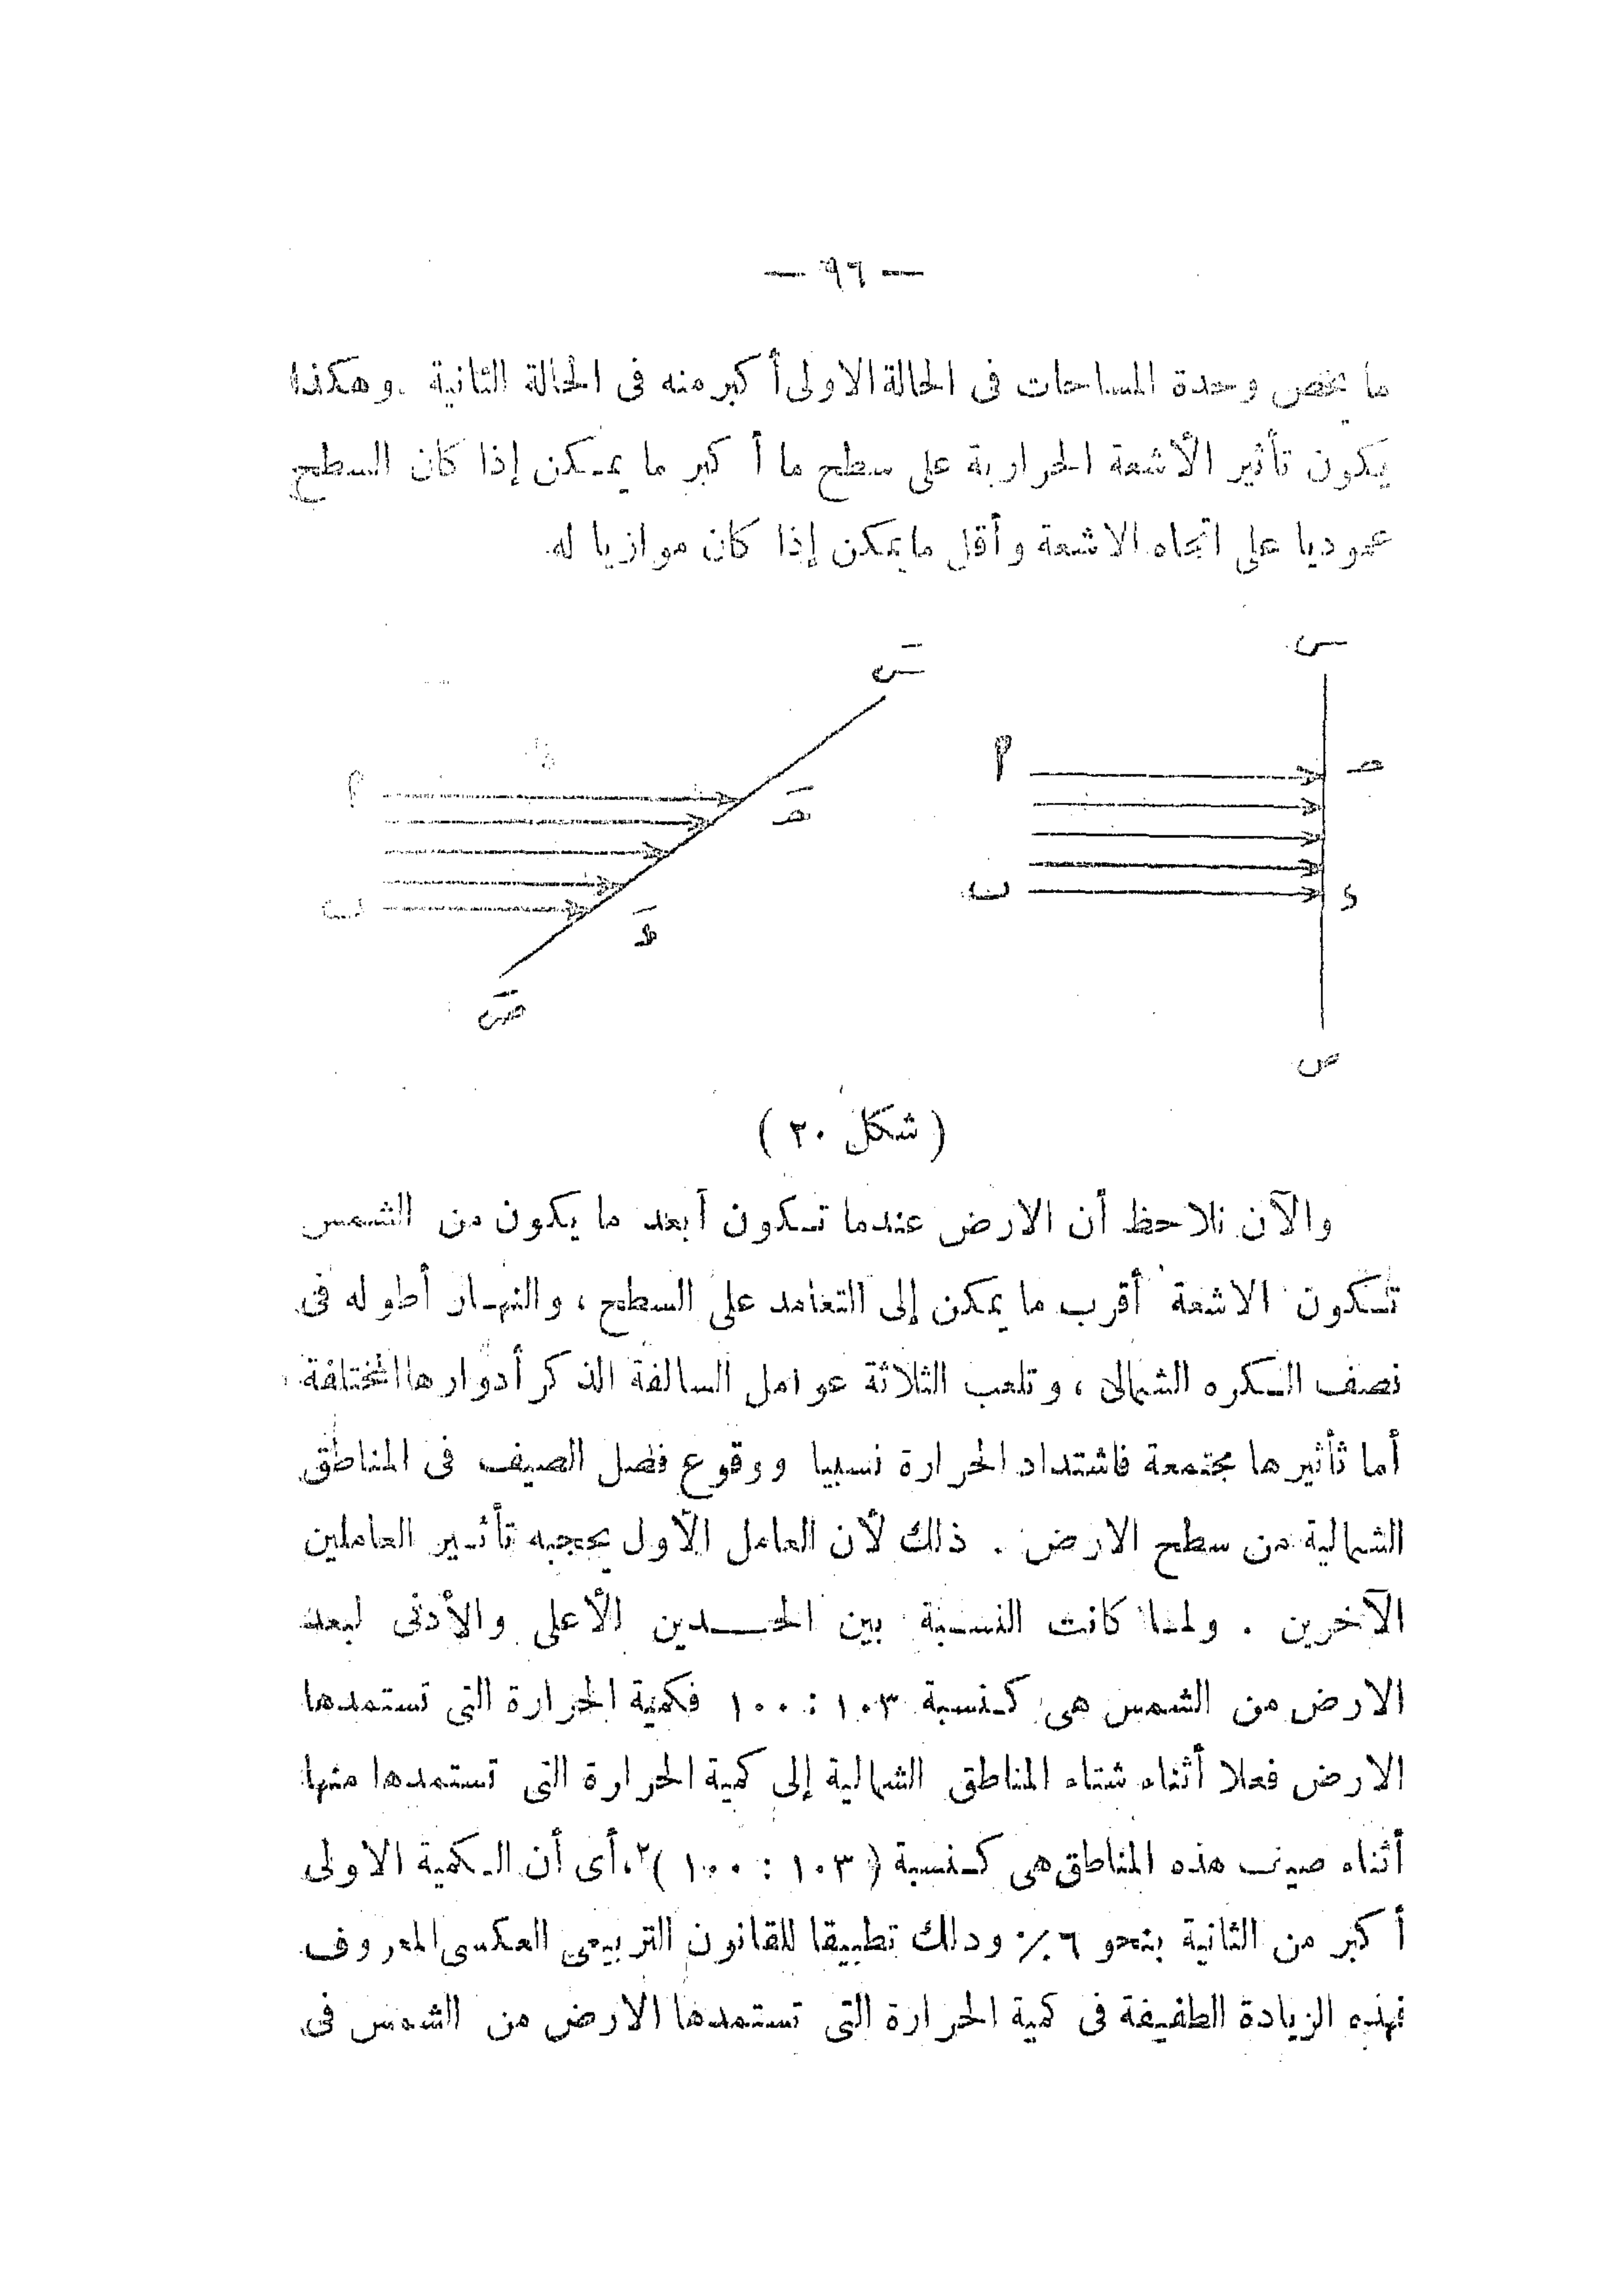 — ٩٦ —
ما يخص وحدة المساحات فى الحالة الاولى أكبر منه فى الحالة الثانية . وهكذا
يكون تأثير الأشعة الحرارية على سطح ما أكبر ما يمكن إذا كان السطح
عموديا على اتجاه الاشعة وأقل ما يمكن إذا كان موازيا له.
سَ
س
م
حـ
م
حـَ
ب
ء
ب
صَ
ص
( شكل ٢٠ )
والآن نلاحظ أن الارض عندما تكون أبعد ما يكون من الشمس
تكون الاشعة أقرب ما يمكن إلى التعامد على السطح ، والنهار أطوله فى
نصف الكره الشمالى ، وتلعب الثلاثة عوامل السالفة الذكر أدوارها المختلفة
أما تأثيرها مجتمعة فاشتداد الحرارة نسبيا ووقوع فصل الصيف فى المناطق
الشمالية من سطح الارض . ذلك لأن العامل الأول يحجبه تأثير العاملين
الآخرين . ولما كانت النسبة بين الحدين الأعلى والأدنى لبعد
الارض من الشمس هى كنسبة ١٠٣ : ١٠٠ فكمية الحرارة التى تستمدها
الارض فعلا أثناء شتاء المناطق الشمالية إلى كمية الحرارة التى تستمدها منها
أثناء صيف هذه المناطق هى كنسبة ( ١٠٣ : ١٠٠ )٢، أى أن الكمية الاولى
أكبر من الثانية بنحو ٦ ٪ ودلك تطبيقا للقانون التربيعى العكسى المعروف
فهذه الزيادة الطفيفة فى كمية الحرارة التى تستمدها الارض من الشمس فى